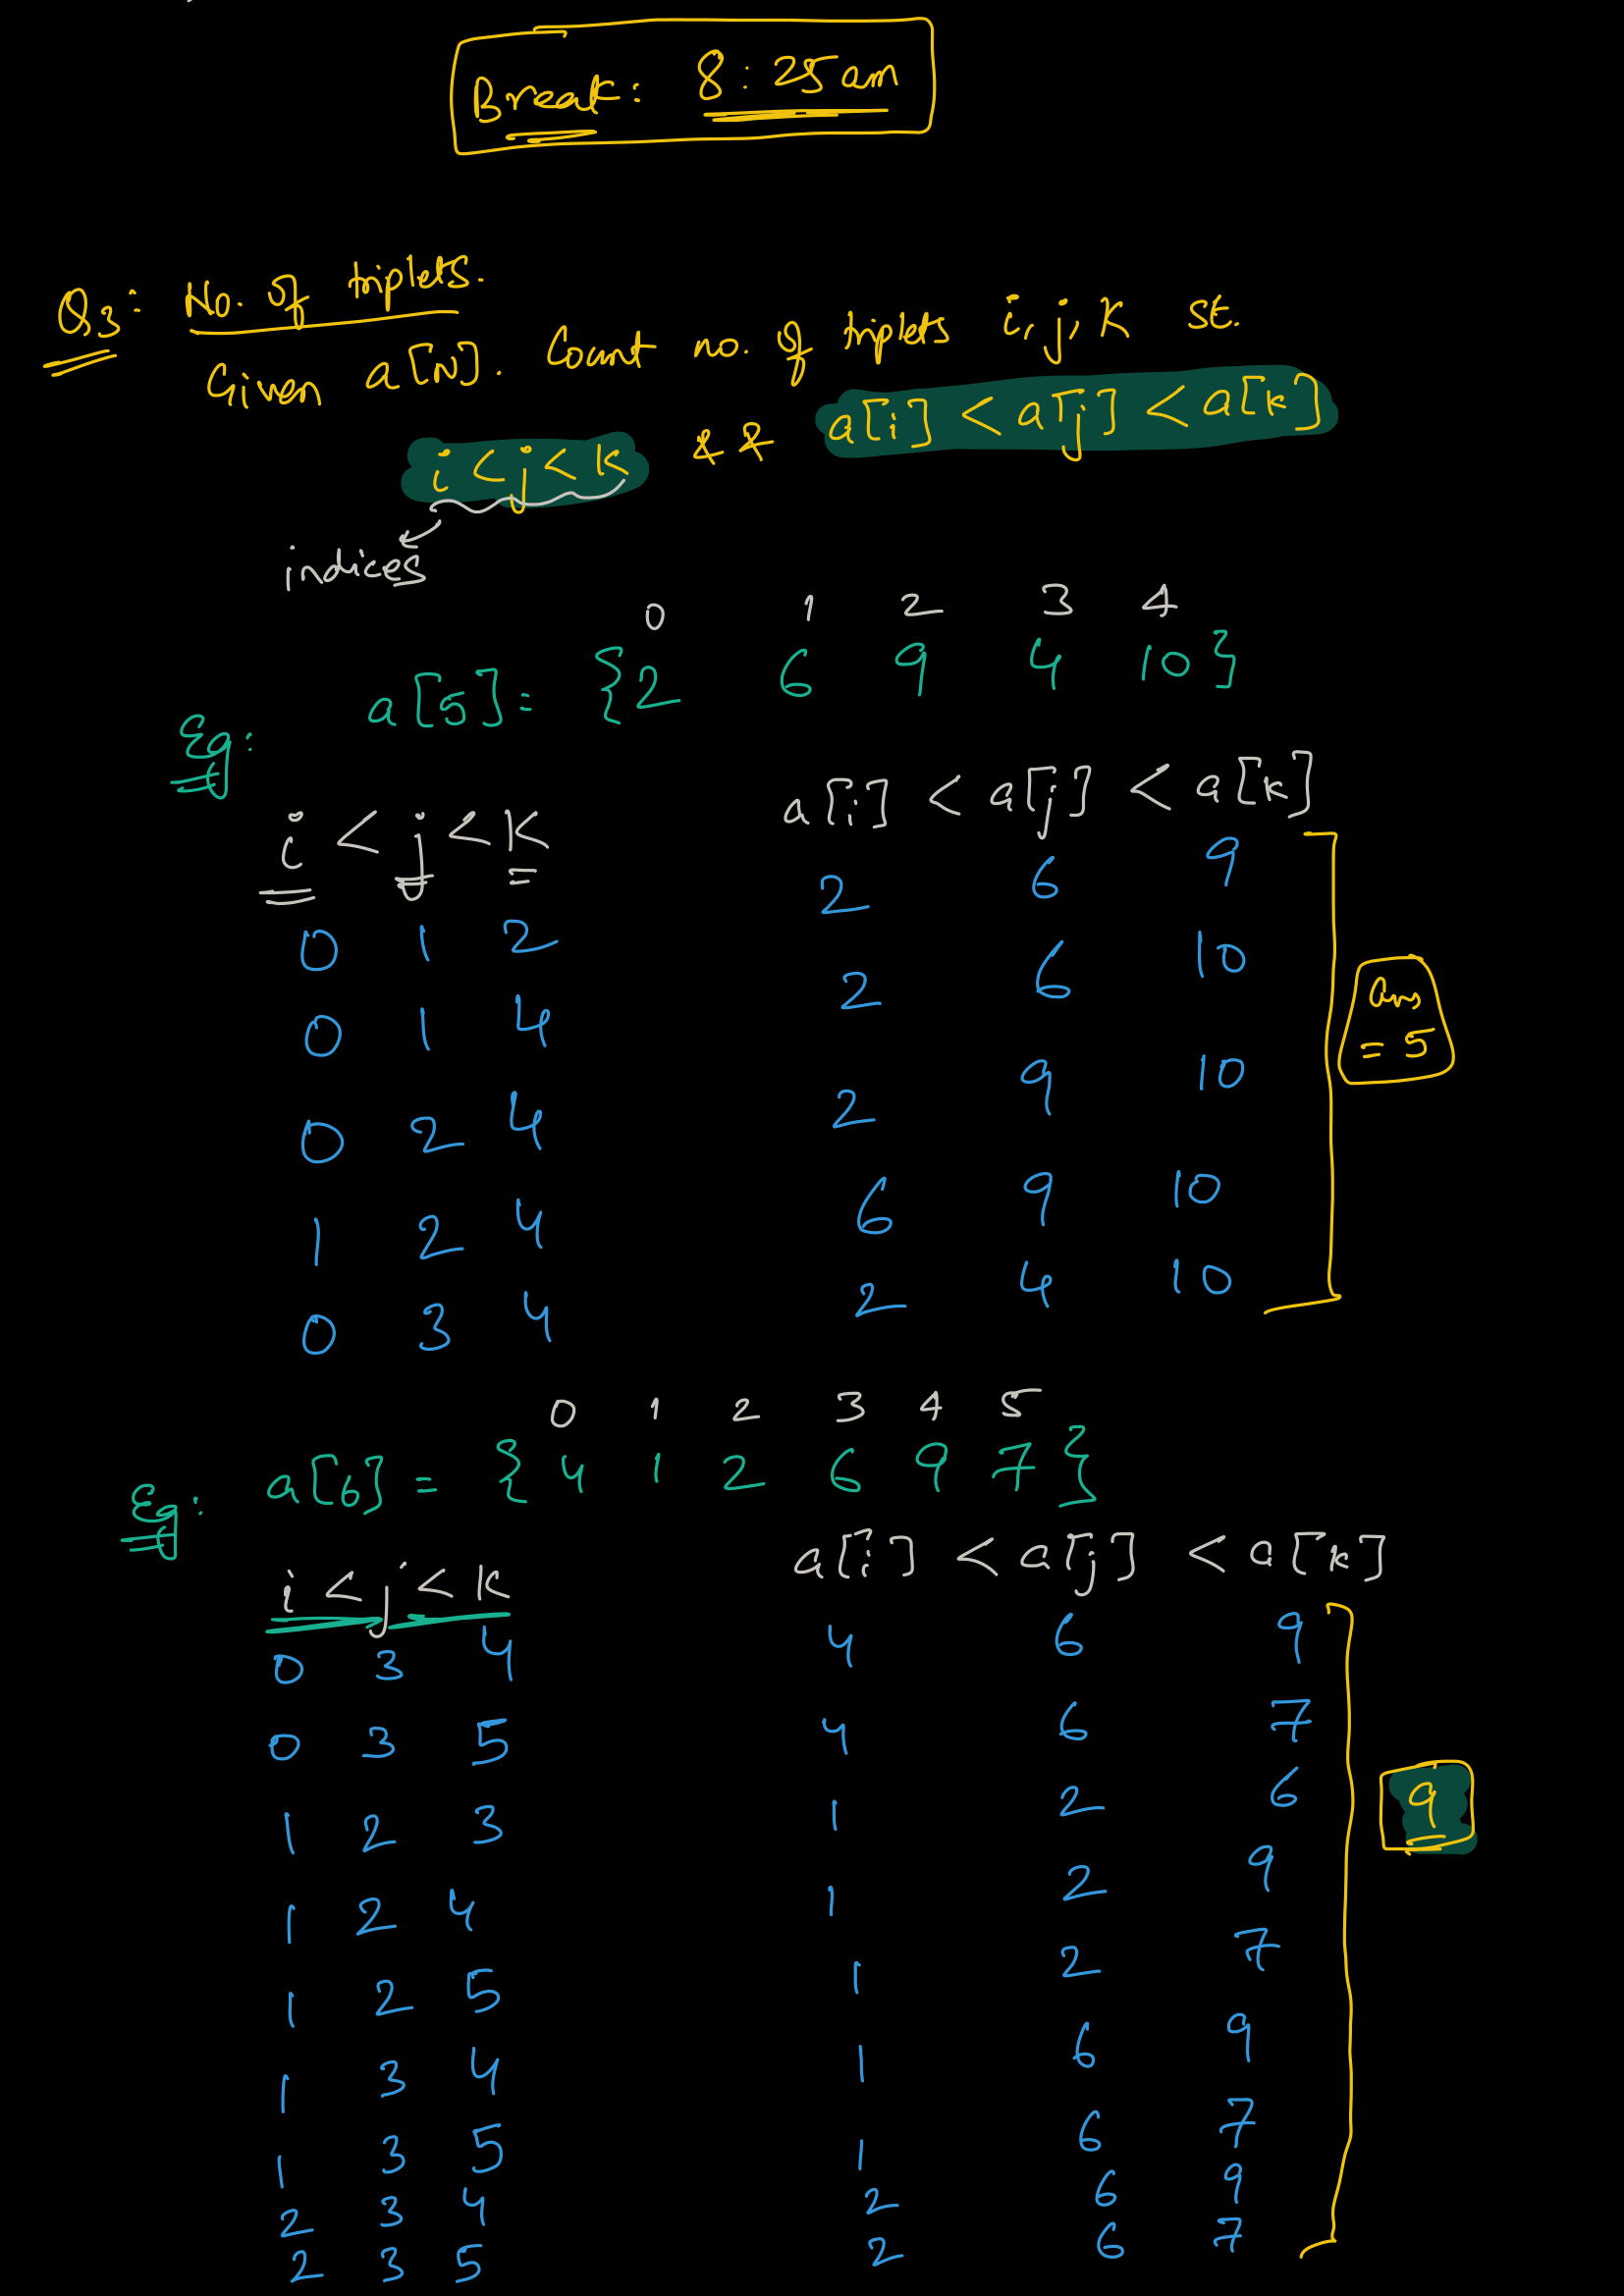 Break: 8:25am
Q3: No. of triplets.
Given a[N]. Count no. of triplets i, j, k st.
i < j < k && a[i] < a[j] < a[k]
indices
0 1 2 3 4
Eg: a[5] = {2 6 9 4 10}
i < j < k a[i] < a[j] < a[k]
0 1 2 2 6 9
0 1 4 2 6 10
0 2 4 2 9 10
1 2 4 6 9 10
0 3 4 2 4 10
ans
= 5
0 1 2 3 4 5
Eg: a[6] = {4 1 2 6 9 7}
i < j < k a[i] < a[j] < a[k]
0 3 4 4 6 9
0 3 5 4 6 7
1 2 3 1 2 6
1 2 4 1 2 9
1 2 5 1 2 7
1 3 4 1 6 9
1 3 5 1 6 7
2 3 4 2 6 9
2 3 5 2 6 7
9